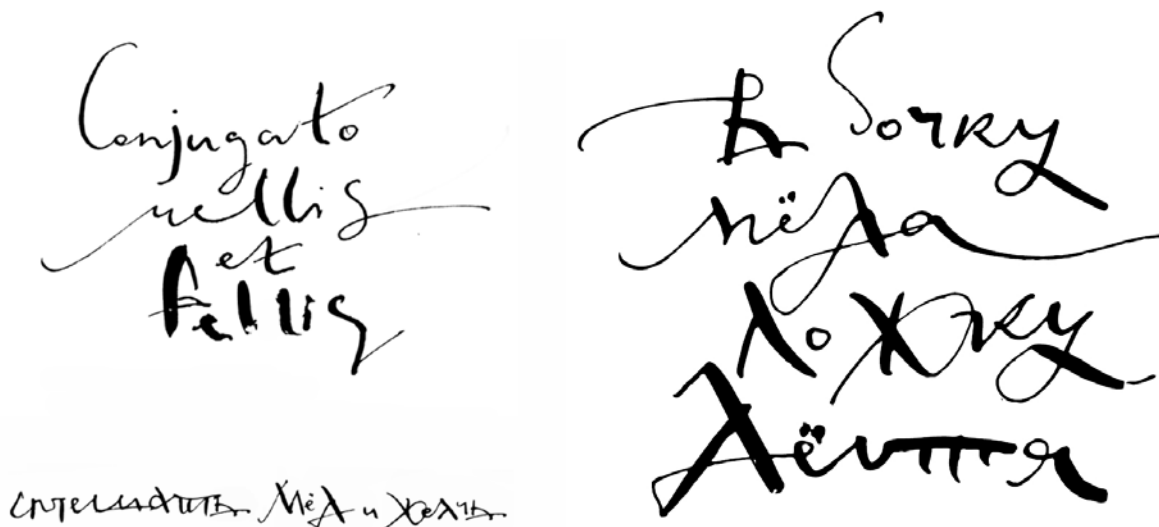 Conjugato
mellis
et
fellis
мёд и желчь
В бочку
мёда
ложку
дёгтя